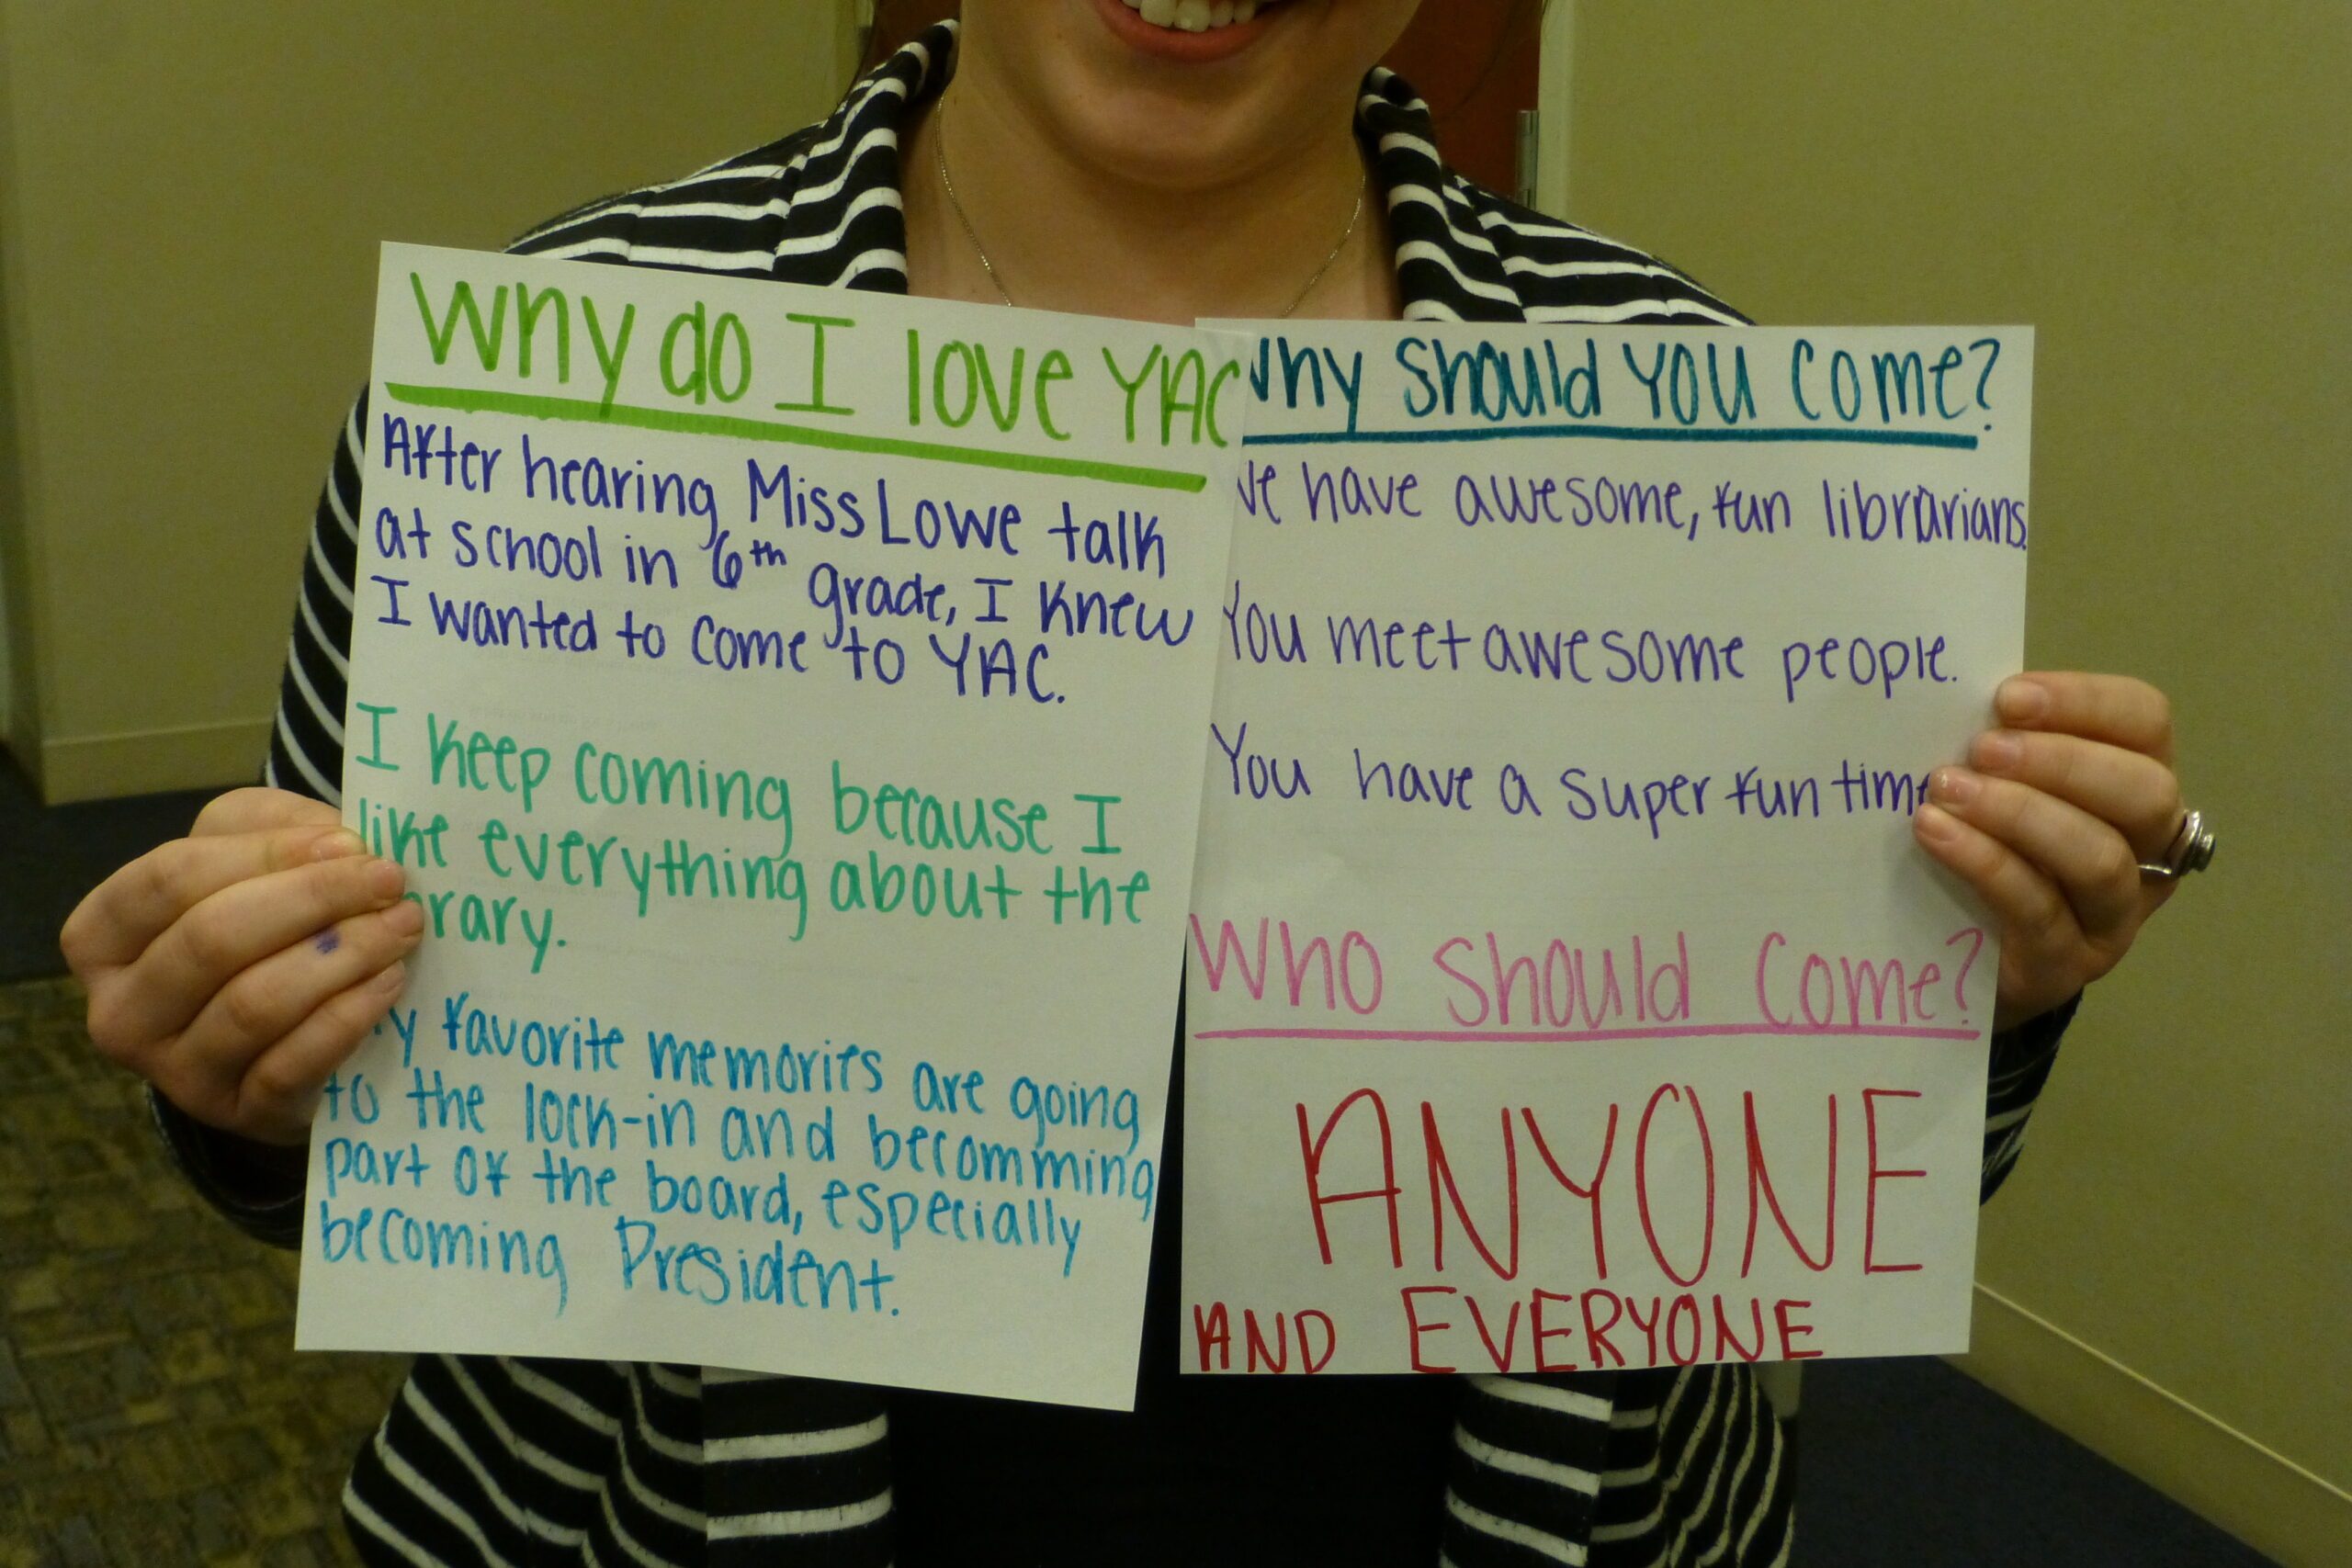 Why do I love YAC
After hearing Miss Lowe talk
at school in 6th grade, I knew
I wanted to come to YAC.
I keep coming because I
like everything about the
brary.
y favorite memories are going
to the lock-in and becomming
part of the board, especially
becoming President.
Why should you come?
We have awesome, fun librarians.
You meet awesome people.
You have a super fun time
Who should come?
ANYONE
AND EVERYONE